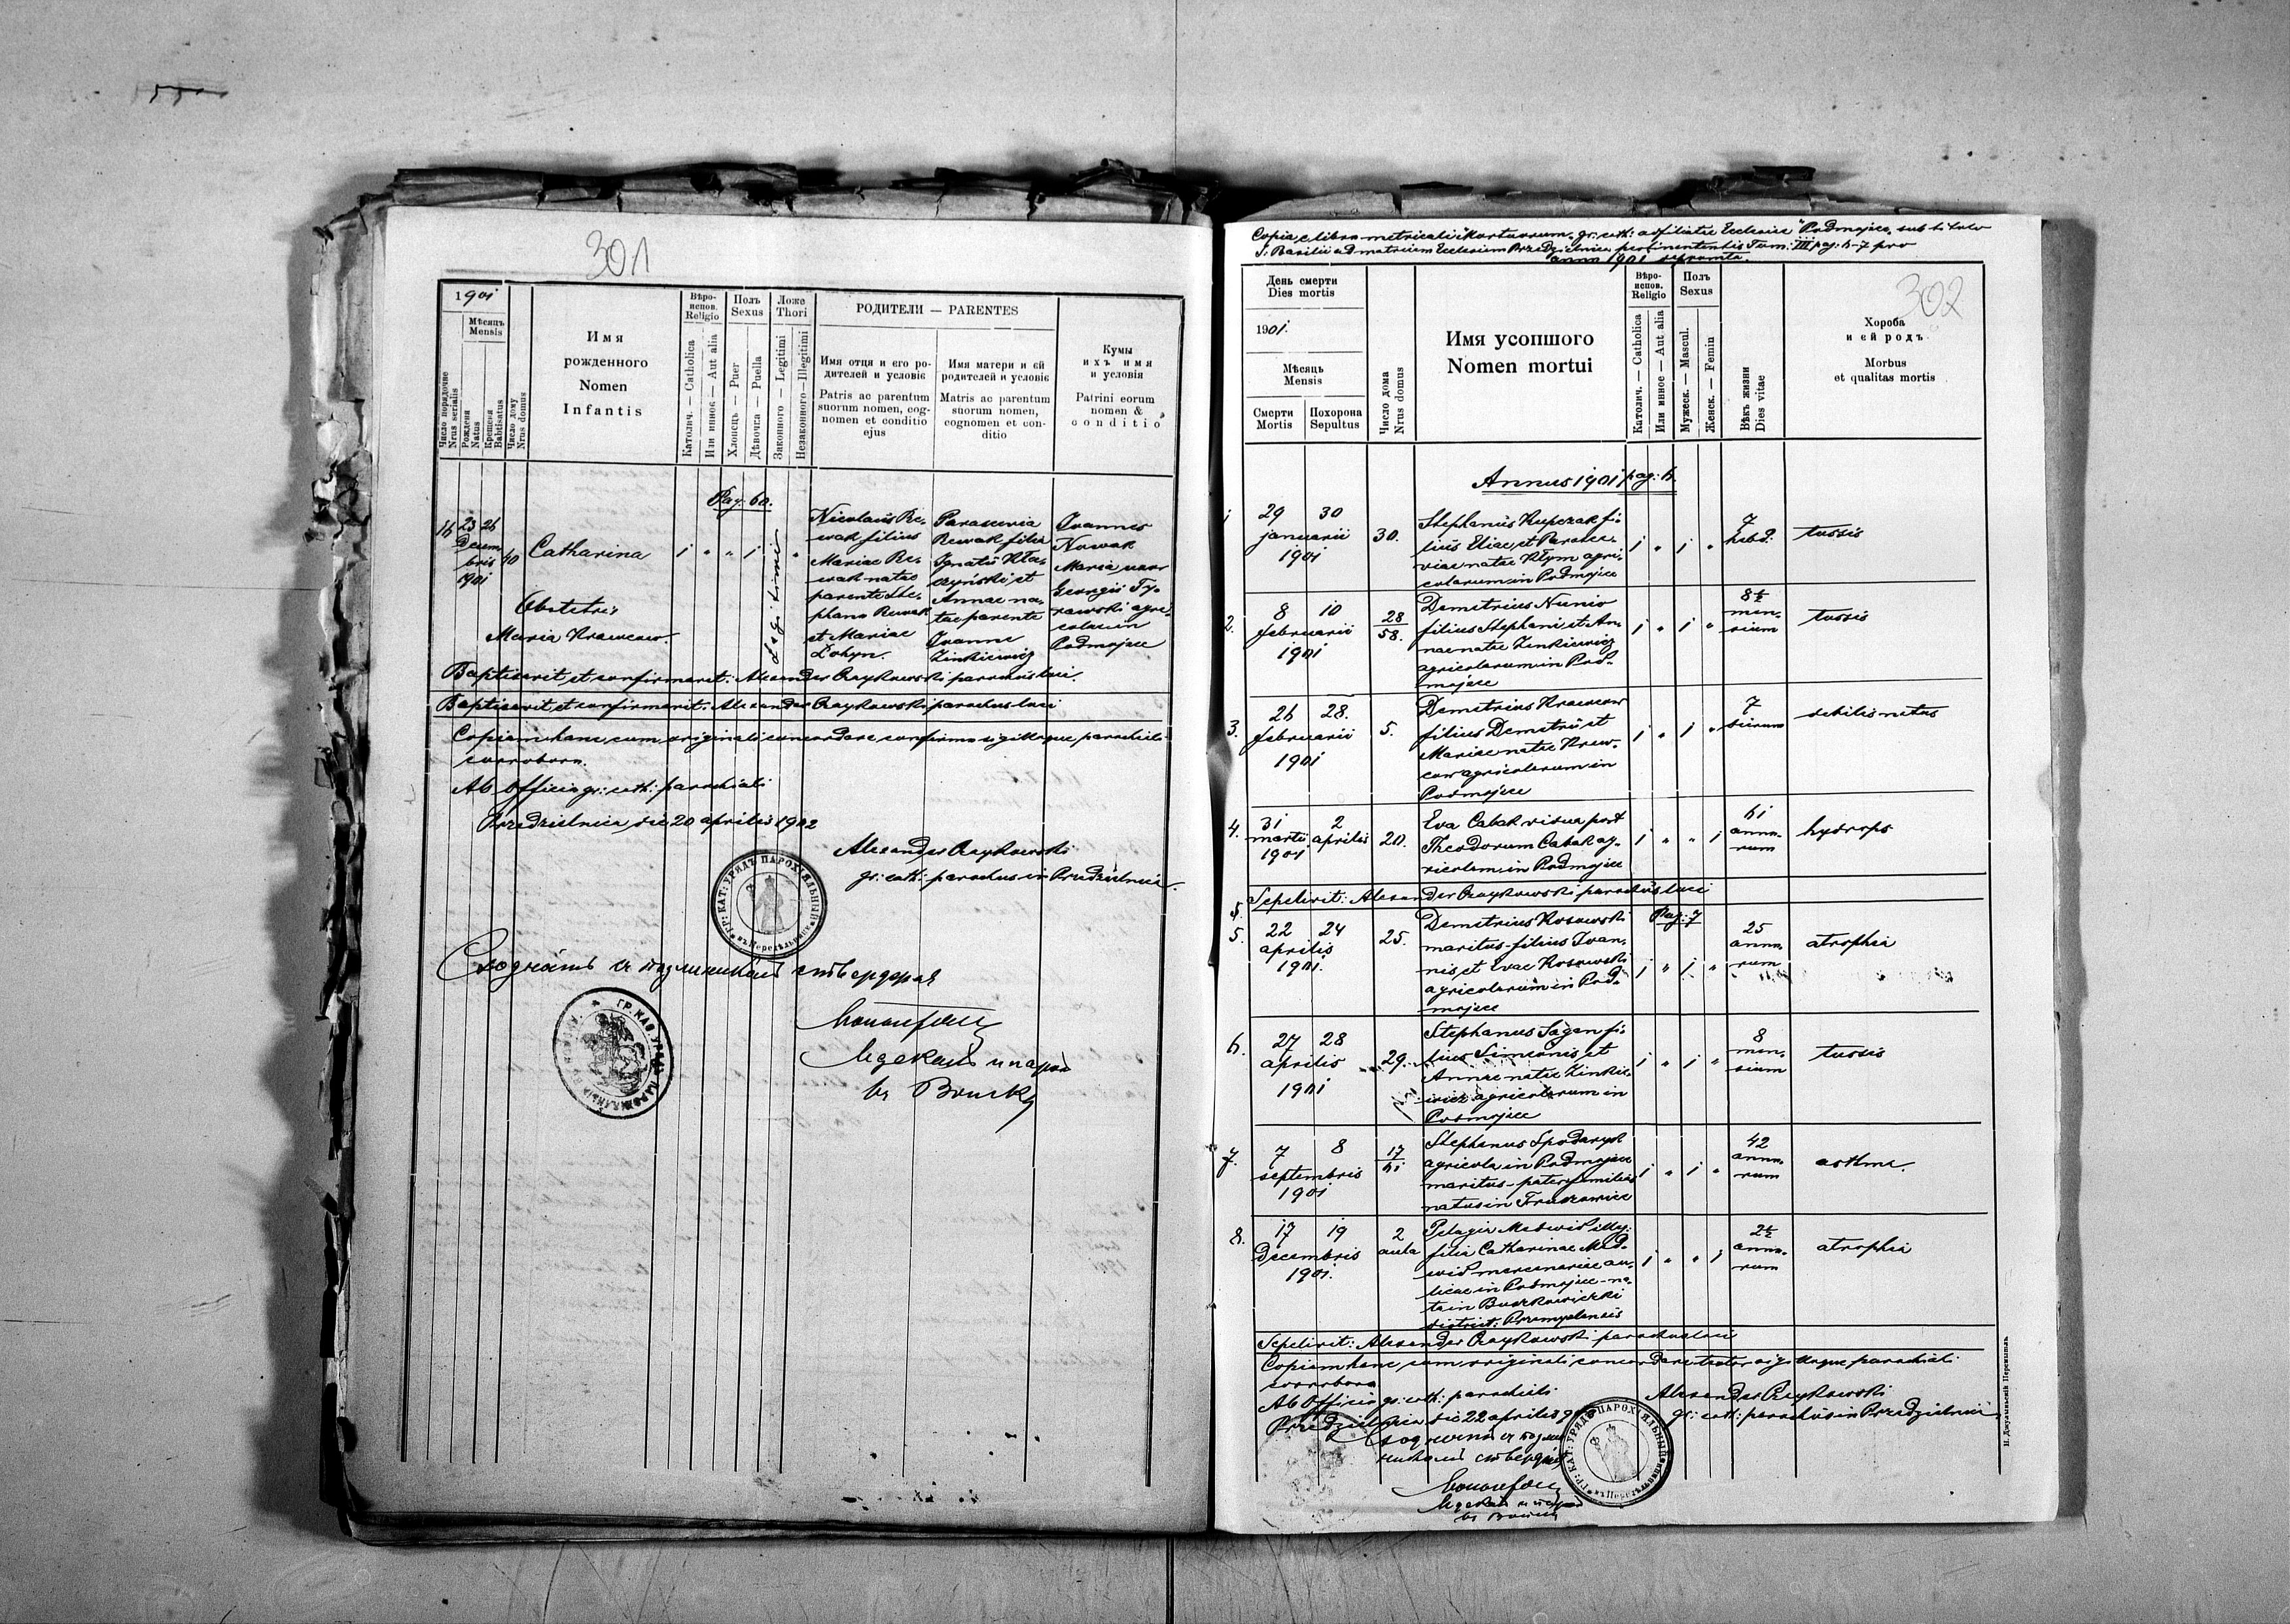 301
1901
Мѣсяць
Mensis
Число порядочне
Nrus serialis
Рожденя
Natus
Крещеня
Babtisatus
Число дому
Nrus domus
Имя
рожденного
Nomen
Infantis
Вѣро-
испов.
Religio
Католич. — Catholica
Или инное — Aut alia
Полъ
Sexus
Хлопець — Puer
Дѣвочка — Puella
Ложе
Thori
Законного — Legitimi
Незаконного — Illegitimi
РОДИТЕЛИ — PARENTES
Имя отця и его ро-
дителей и условіє
Patris ac parentum
suorum nomen, cog-
nomen et conditio
ejus
Имя матери и єй
родителей и условіє
Matris ac parentum
suorum nomen,
cognomen et con-
ditio
Кумы
ихъ имя
и условія
Patrini eorum
nomen &
conditio
Pag: 60.
16
23 26
Decem
bris
1901
40
Catharina
Legitimi
Nicolaus Re-
wak filius
Mariae Re-
wak natae
parente Ste-
phano Rewak
et Mariae
Dohyn.
Parascevia
Rewak filia
Ignatii Kła-
czyński et
Annae na-
tae parente
Joanne
Zinkiewicz
Joannes
Nowak
Maria uxor
Georgii Ty-
rawski agri-
colae in
Podmojsce
Obstetrix
Maria Krawcow.
Baptisavit et confirmavit: Alexander Czaykowski parochus loci.
Baptisavit et confirmavit: Alexander Czaykowski parochus loci
Copiam hanc cum originali concordare confirmo sigilloque parochiali
corroboro.
Ab Officio gr: cath: parochiali
Przedzielnica die 20 aprilis 1902
Alexander Czaykowski
gr: cath: parochus in Przedzielnica.
ГР: КАТ: УРЯДЪ ПАРОХІЯЛЬНЫЙ
Сходность съ подлинникомъ ствердирая
302
Copia e libro metricali Mortuorum gr: cath: adfiliatae Ecclesiae Podmojsce sub titulo
S: Basilii ad matricem Ecclesiam Przedzielnica pertinentis Tom: III pag: 6-7 pro
anno 1901 deprompta.
День смерти
Dies mortis
1901.
Мѣсяць
Mensis
Смерти
Mortis
Похорона
Sepultus
Число дома
Nrus domus
Имя усопшого
Nomen mortui
Вѣро-
испов.
Religio
Католич. — Catholica
Или инное — Aut alia
Полъ
Sexus
Мужеск. — Mascul.
Женск. — Femin
Вѣкъ жизни
Dies vitae
Хороба
и єй родъ
Morbus
et qualitas mortis
Annus 1901 pag: 6.
1
29 30
januarii
1901
30.
Stephanus Kupczak fi-
lius Eliae et Parasce-
viae natae Kłym agri-
colarum in Podmojsce
7
hebd.
tussis
2.
8 10
februarii
1901
28
58.
Demetrius Nunio
filius Stephani et An-
nae natae Zinkiewicz
agricolarum in Pod-
mojsce
8½
men-
sium
tussis
3.
26 28.
februarii
1901
5.
Demetrius Krawcow
filius Demetrii et
Mariae natae Kraw-
cow agricolarum in
Podmojsce
7
dierum
debilis natus
4.
31 2
martii aprilis
1901
20.
Eva Cabak vidua post
Theodorum Cabak ag-
ricolam in Podmojsce
61
anno-
rum
hydrops
Sepelivit: Alexander Czaykowski parochus loci
Pag: 7
5.
22 24
aprilis
1901.
25.
Demetrius Kosowski
maritus-filius Ivan-
nis et Evae Kosowski
agricolarum in Pod-
mojsce
25
anno-
rum
atrophia
6.
27 28
aprilis
1901
29.
Stephanus Sagan fi-
lius Simeonis et
Annae natae Zinkie-
wicz agricolarum in
Podmojsce
8
men-
sium
tussis
7.
7 8
septembris
1901
17
61
Stephanus Spodaryk
agricola in Podmojsce
maritus-pater familias
natus in Truszowice
42
anno-
rum
asthma.
8.
17 19
Decembris
1901.
2
aula
Pelagia Medwid illeg:
filia Catharinae Med-
wid mercenariae au-
licae in Podmojsce-na-
ta in Buszkowiczki
district: Przemyslensis
2½
anno-
rum
atrophia
Sepelivit: Alexander Czaykowski parochus loci
Copiam hanc cum originali concordare testor sigilloque parochiali
corroboro
Ab Officio gr: cath: parochiali
Przedzielnica die 22 aprilis 9
Alexander Czaykowski
gr: cath: parochus in Przedzielnica
ГР: КАТ: УРЯДЪ ПАРОХІЯЛЬНЫЙ
Н. Джулыньскій Перемышль